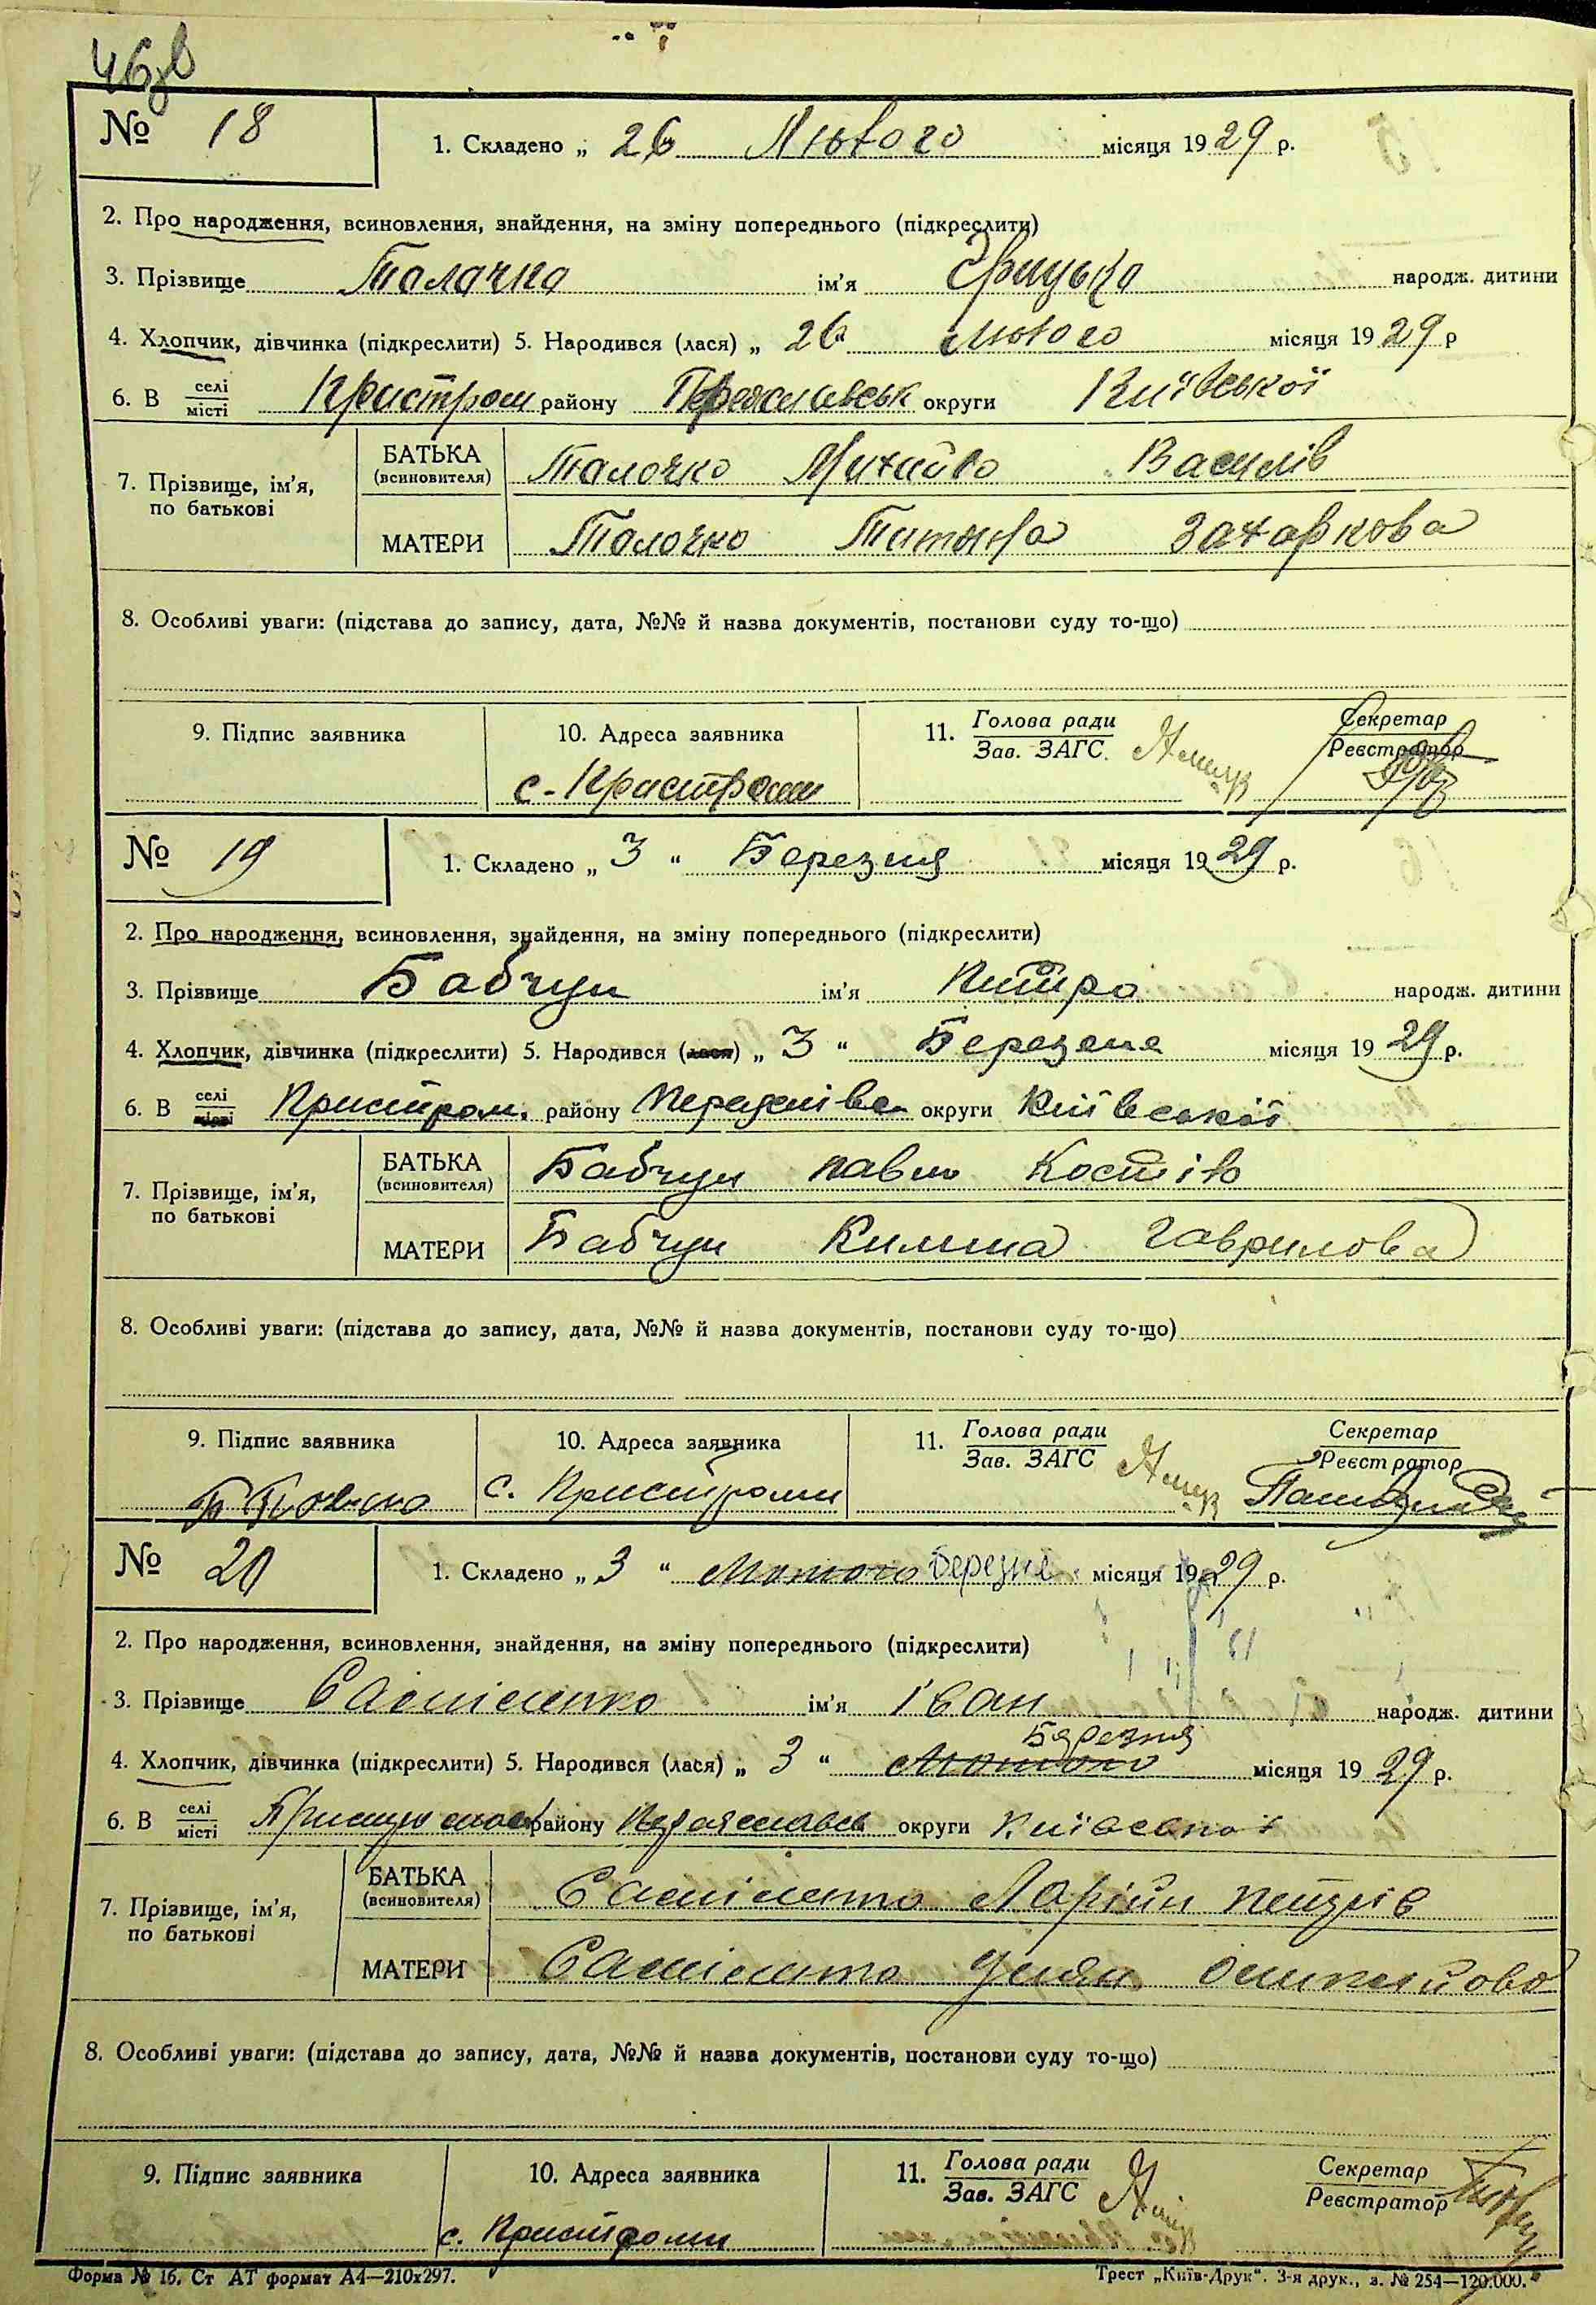 46зв
№ 18
1. Складено „ 26 Лютого місяця 1929 р.
2. Про народження, всиновлення, знайдення, на зміну попереднього (підкреслити)
3. Прізвище Талачко ім'я Грицько народж. дитини
4. Хлопчик, дівчинка (підкреслити) 5. Народився (лася) „ 26 Лютого місяця 1929 р
6. В селі/місті Пристром району Переяславськ округи Київської
7. Прізвище, ім'я, по батькові
БАТЬКА (всиновителя) Талочко Михайло Василів
МАТЕРИ Талочко Титяна Захаркова
8. Особливі уваги: (підстава до запису, дата, №№ й назва документів, постанови суду то-що)
9. Підпис заявника 10. Адреса заявника 11. Голова ради/Зав. ЗАГС. Секретар/Реєстратор
с. Пристроми
№ 19
1. Складено „ 3 “ Березня місяця 1929 р.
2. Про народження, всиновлення, знайдення, на зміну попереднього (підкреслити)
3. Прізвище Бабчун ім'я Питро народж. дитини
4. Хлопчик, дівчинка (підкреслити) 5. Народився (лася) „ 3 “ Березеня місяця 1929 р.
6. В селі/місті Пристром. району округи Київської
7. Прізвище, ім'я, по батькові
БАТЬКА (всиновителя) Бабчун павло Костів
МАТЕРИ Бабчун Килина Гаврилова
8. Особливі уваги: (підстава до запису, дата, №№ й назва документів, постанови суду то-що)
9. Підпис заявника 10. Адреса заявника 11. Голова ради/Зав. ЗАГС Секретар/Реєстратор
с. Пристроми
№ 20
1. Складено „ 3 “ Лютого березня місяця 1929 р.
2. Про народження, всиновлення, знайдення, на зміну попереднього (підкреслити)
3. Прізвище ім'я Іван народж. дитини
Березня
4. Хлопчик, дівчинка (підкреслити) 5. Народився (лася) „ 3 “ Лютого місяця 1929 р.
6. В селі/місті району Переяславсь округи Київської
7. Прізвище, ім'я, по батькові
БАТЬКА (всиновителя) Ларійн петрів
МАТЕРИ
8. Особливі уваги: (підстава до запису, дата, №№ й назва документів, постанови суду то-що)
9. Підпис заявника 10. Адреса заявника 11. Голова ради/Зав. ЗАГС Секретар/Реєстратор
с. Пристроми
Форма № 16. Ст АТ формат А4—210х297. Трест „Київ-Друк“. 3-я друк., з. № 254—120.000.